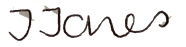 J Jones